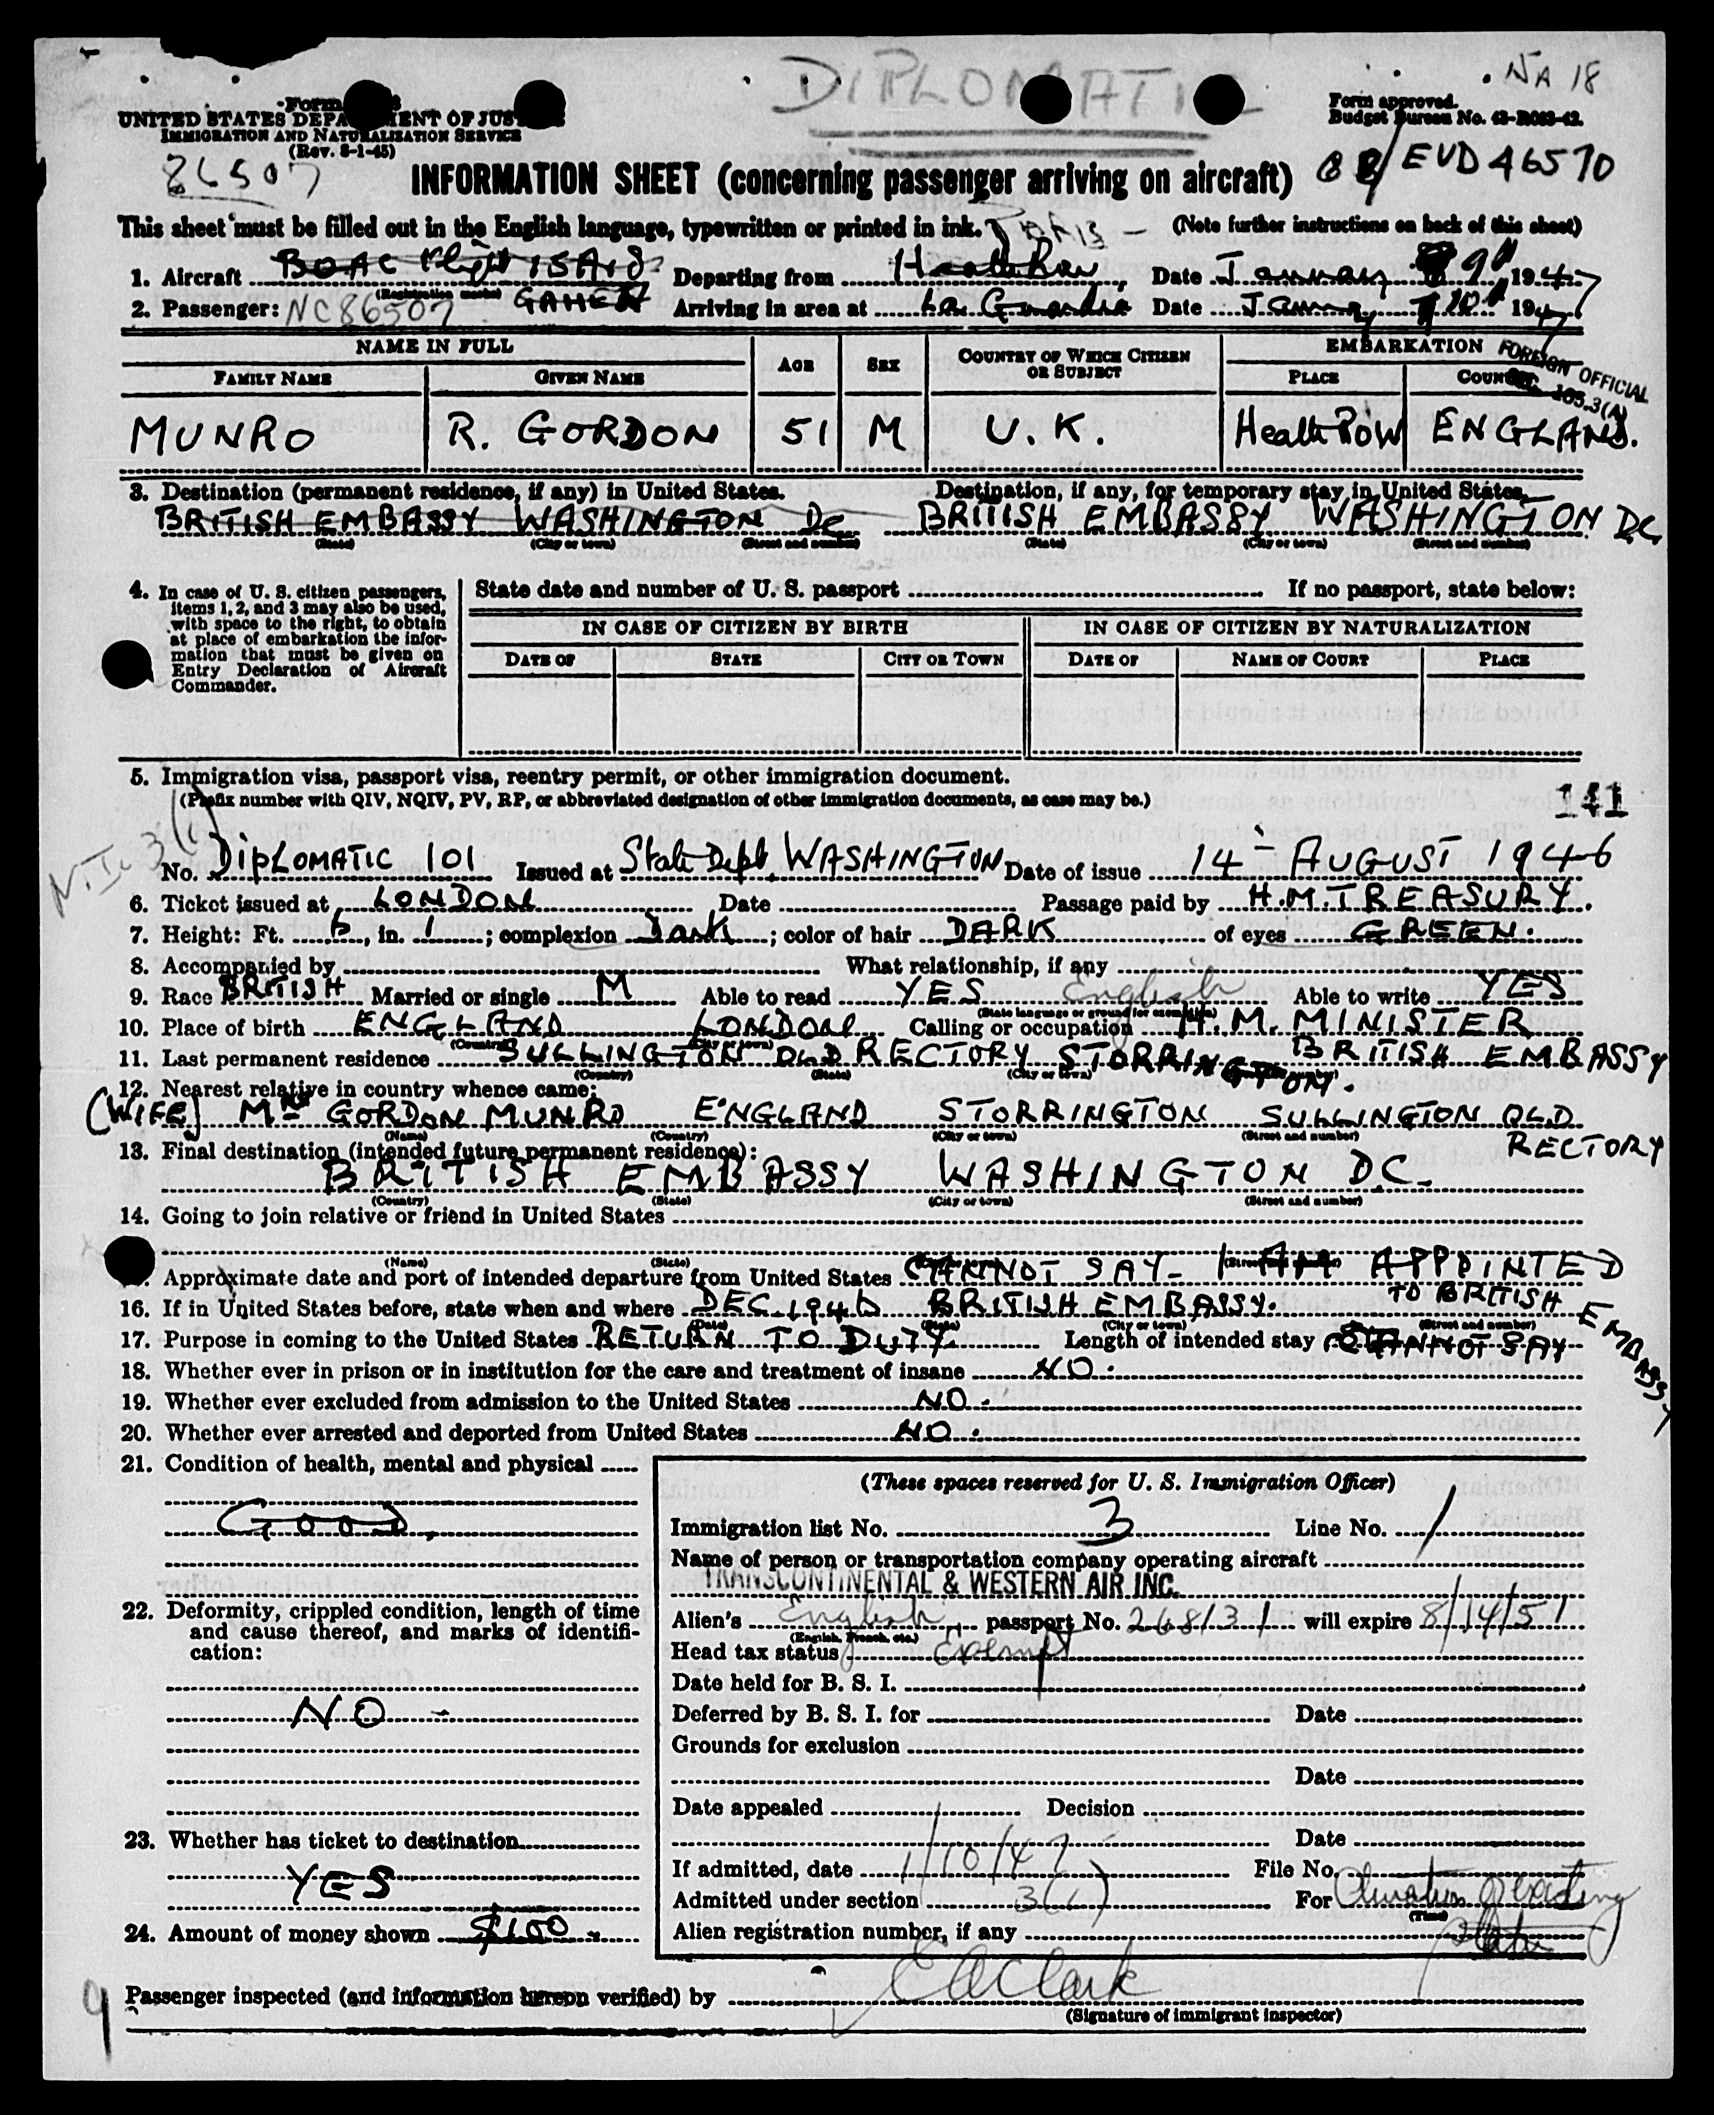 DIPLOMATIC
NA 18
Form
UNITED STATES DEPARTMENT OF JUSTICE
IMMIGRATION AND NATURALIZATION SERVICE
(Rev. 8-1-45)
Form approved.
Budget Bureau No. 43-R063-42.
86507
INFORMATION SHEET (concerning passenger arriving on aircraft)
EVD 46570
This sheet must be filled out in the English language, typewritten or printed in ink.
(Note further instructions on back of this sheet)
1. Aircraft BOAC Flight Departing from Heath Row Date January 9th 1947
(Registration marks)
2. Passenger: NC86507 GAHEN Arriving in area at La Guardia Date January 10th 1947
NAME IN FULL AGE SEX COUNTRY OF WHICH CITIZEN OR SUBJECT EMBARKATION
FAMILY NAME GIVEN NAME PLACE COUNTRY
FOREIGN OFFICIAL
105.3(A)
MUNRO R. GORDON 51 M U.K. Heath Row ENGLAND.
3. Destination (permanent residence, if any) in United States. Destination, if any, for temporary stay in United States.
BRITISH EMBASSY WASHINGTON DC BRITISH EMBASSY WASHINGTON D.C.
(State) (City or town) (Street and number) (State) (City or town) (Street and number)
4. In case of U. S. citizen passengers, items 1, 2, and 3 may also be used, with space to the right, to obtain at place of embarkation the information that must be given on Entry Declaration of Aircraft Commander.
State date and number of U. S. passport If no passport, state below:
IN CASE OF CITIZEN BY BIRTH IN CASE OF CITIZEN BY NATURALIZATION
DATE OF STATE CITY OR TOWN DATE OF NAME OF COURT PLACE
5. Immigration visa, passport visa, reentry permit, or other immigration document.
(Prefix number with QIV, NQIV, PV, RP, or abbreviated designation of other immigration documents, as case may be.)
141
No. DIPLOMATIC 101 Issued at State Dept. WASHINGTON Date of issue 14 - AUGUST 1946
6. Ticket issued at LONDON Date Passage paid by H.M. TREASURY.
7. Height: Ft. 6, in. 1; complexion Dark; color of hair DARK of eyes GREEN.
8. Accompanied by What relationship, if any
9. Race BRITISH Married or single M Able to read YES English Able to write YES
(State language or ground for exemption)
10. Place of birth ENGLAND LONDON Calling or occupation H.M. MINISTER
(Country) (City or town)
BRITISH EMBASSY
11. Last permanent residence SULLINGTON OLD RECTORY STORRINGTON.
(Country) (State) (City or town) (Street and number)
12. Nearest relative in country whence came:
(WIFE) Mrs GORDON MUNRO ENGLAND STORRINGTON SULLINGTON OLD RECTORY
(Name) (Country) (City or town) (Street and number)
13. Final destination (intended future permanent residence):
BRITISH EMBASSY WASHINGTON D.C.
(Country) (State) (City or town) (Street and number)
14. Going to join relative or friend in United States
(Name) (State) (Street and number)
Approximate date and port of intended departure from United States CANNOT SAY - I AM APPOINTED TO BRITISH EMBASSY
16. If in United States before, state when and where DEC. 1946 BRITISH EMBASSY.
(Date) (State) (City or town) (Street and number)
17. Purpose in coming to the United States RETURN TO DUTY Length of intended stay CANNOT SAY
18. Whether ever in prison or in institution for the care and treatment of insane NO.
19. Whether ever excluded from admission to the United States NO.
20. Whether ever arrested and deported from United States NO.
21. Condition of health, mental and physical
GOOD.
22. Deformity, crippled condition, length of time and cause thereof, and marks of identification:
NO -
23. Whether has ticket to destination
YES
24. Amount of money shown $100 -
(These spaces reserved for U. S. Immigration Officer)
Immigration list No. 3 Line No. 1
Name of person or transportation company operating aircraft
TRANSCONTINENTAL & WESTERN AIR INC.
Alien's English passport No. 268131 will expire 8/14/51
(English, French, etc.)
Head tax status Exempt
Date held for B. S. I.
Deferred by B. S. I. for Date
Grounds for exclusion
Date
Date appealed Decision
Date
If admitted, date 1/10/47 File No.
Admitted under section 3(1) For Duration of existing Status
(Time)
Alien registration number, if any
9
Passenger inspected (and information hereon verified) by E A Clark
(Signature of immigrant inspector)